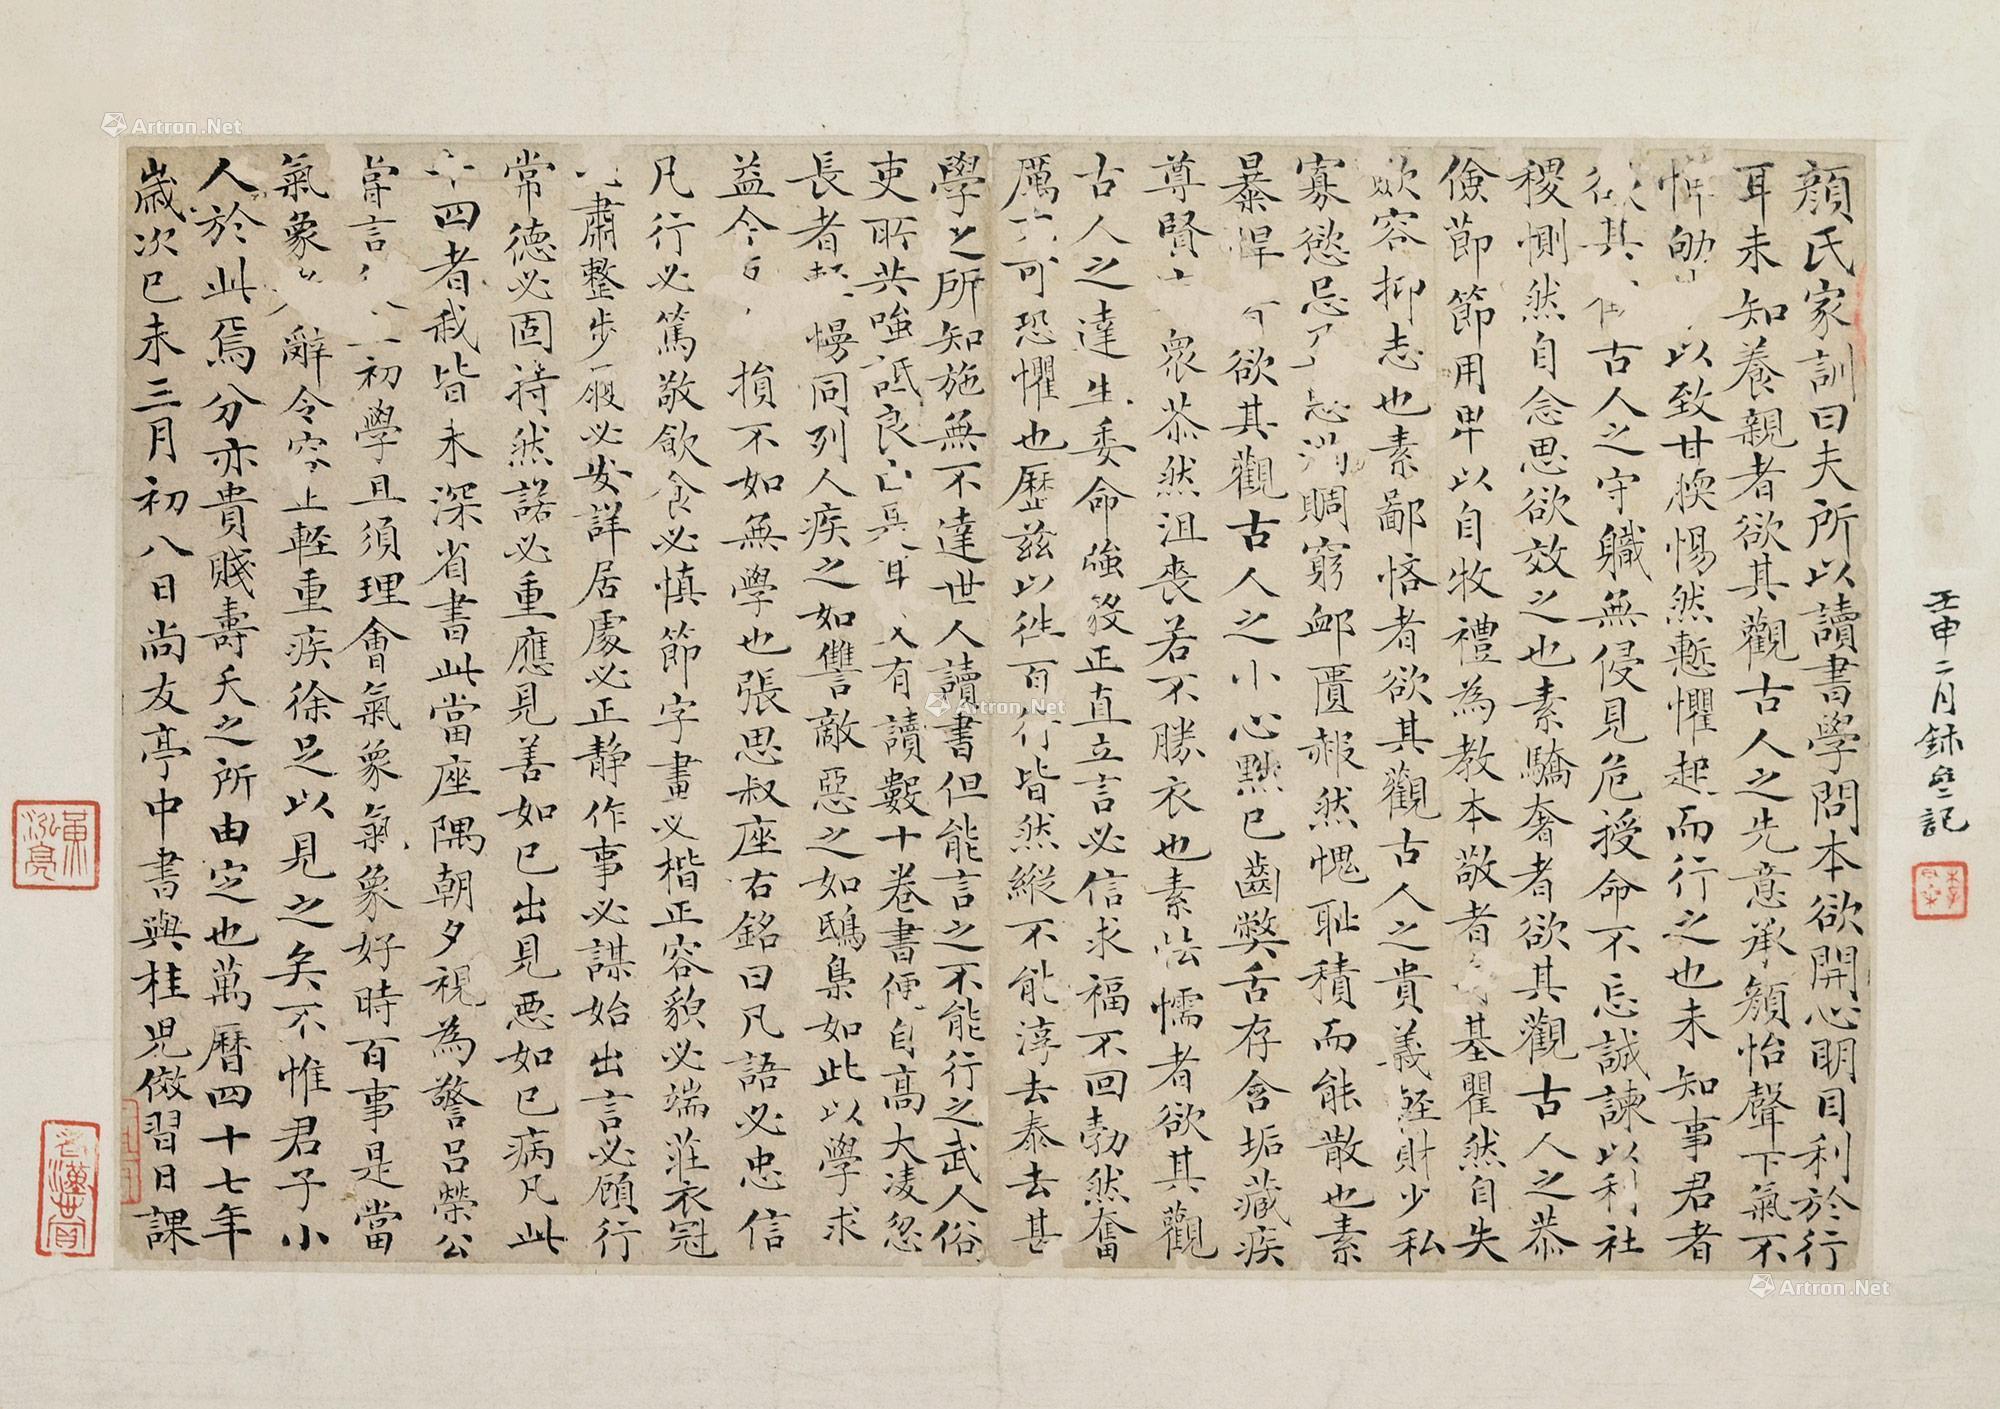 顔氏家訓曰夫所以讀書學問本欲開心明目利於行
耳未知養親者欲其觀古人之先意承顔怡聲下氣不
憚劬以致甘腝惕然慙懼起而行之也未知事君者
欲其古人之守職無侵見危授命不忘誠諫以利社
稷惻然自念思欲效之也素驕奢者欲其觀古人之恭
儉節節用卑以自牧禮為教本敬者基瞿然自失
歛容抑志也素鄙悋者欲其觀古人之貴義輕財少私
寡慾忌惡满賙窮卹匱赧然愧恥積而能散也素
暴悍欲其觀古人之小心黜己齒弊舌存含垢藏疾
尊賢衆苶然沮喪若不勝衣也素怯懦者欲其觀
古人之達生委命強毅正直立言必信求福不回勃然奮
厲可恐懼也歷茲以往百行皆然縱不能淳去泰去甚
學之所知施無不達世人讀書但能言之不能行之武人俗
吏所共嗤詆良有讀數十卷書便自高大凌忽
長者慢同列人疾之如讐敵惡之如鴟梟如此以學求
益今損不如無學也張思叔座右銘曰凡語必忠信
凡行必篤敬飲食必慎節字畫必楷正容貌必端莊衣冠
肅整步履必安詳居處必正静作事必謀始出言必顧行
常德必固持然諾必重應見善如己出見惡如己病凡此
十四者我皆未深省書此當座隅朝夕視為警吕榮公
嘗言初學且須理會氣象氣象好時百事是當
氣象辭令容止輕重疾徐足以見之矣不惟君子小
人於此焉分亦貴賤壽夭之所由定也萬曆四十七年
歲次己未三月初八日尚友亭中書與桂兒倣習日課
壬申二月銤叁記
Artron.Net
Artron.Net
Artron.Net